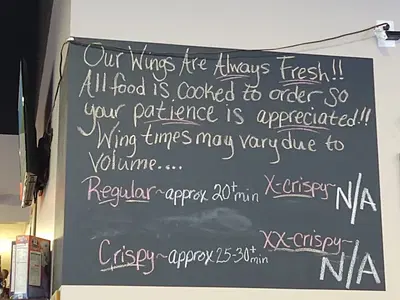 Our Wings Are Always Fresh!!
All food is cooked to order so
your patience is appreciated!!
Wing times may vary due to
volume....
Regular~approx 20+min X-crispy~N/A
Crispy~approx 25-30+min XX-crispy~N/A